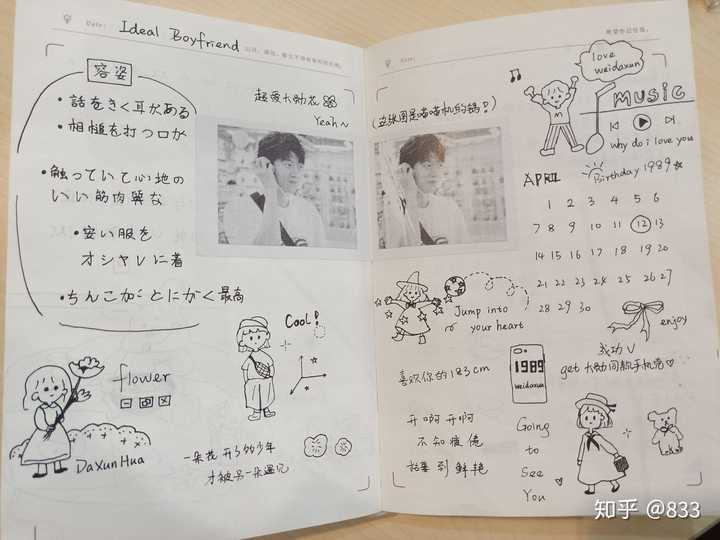 Date:
Ideal Boyfriend
容姿
・話をきく耳がある
・相槌を打つ口が
・触っていて心地の
いい筋肉質な
・安い服を
オシャレに着
・ちんこがとにかく最高
超爱大勋花
Yeah~
Cool!
flower
DaXunHua
一朵花开了的少年
才被另一朵遇见
Date:
love
weidaxun
MUSIC
why do i love you
(这张图是喵喵机的锅!)
Birthday 1989
APRIL
1 2 3 4 5 6
7 8 9 10 11 12 13
14 15 16 17 18 19 20
21 22 23 24 25 26 27
28 29 30
Jump into
your heart
enjoy
成功 V
get 大勋同款手机壳
1989
weidaxun
喜欢你的183cm
开啊开啊
不知疲倦
枯萎到鲜艳
Going
to
See
You
知乎 @833